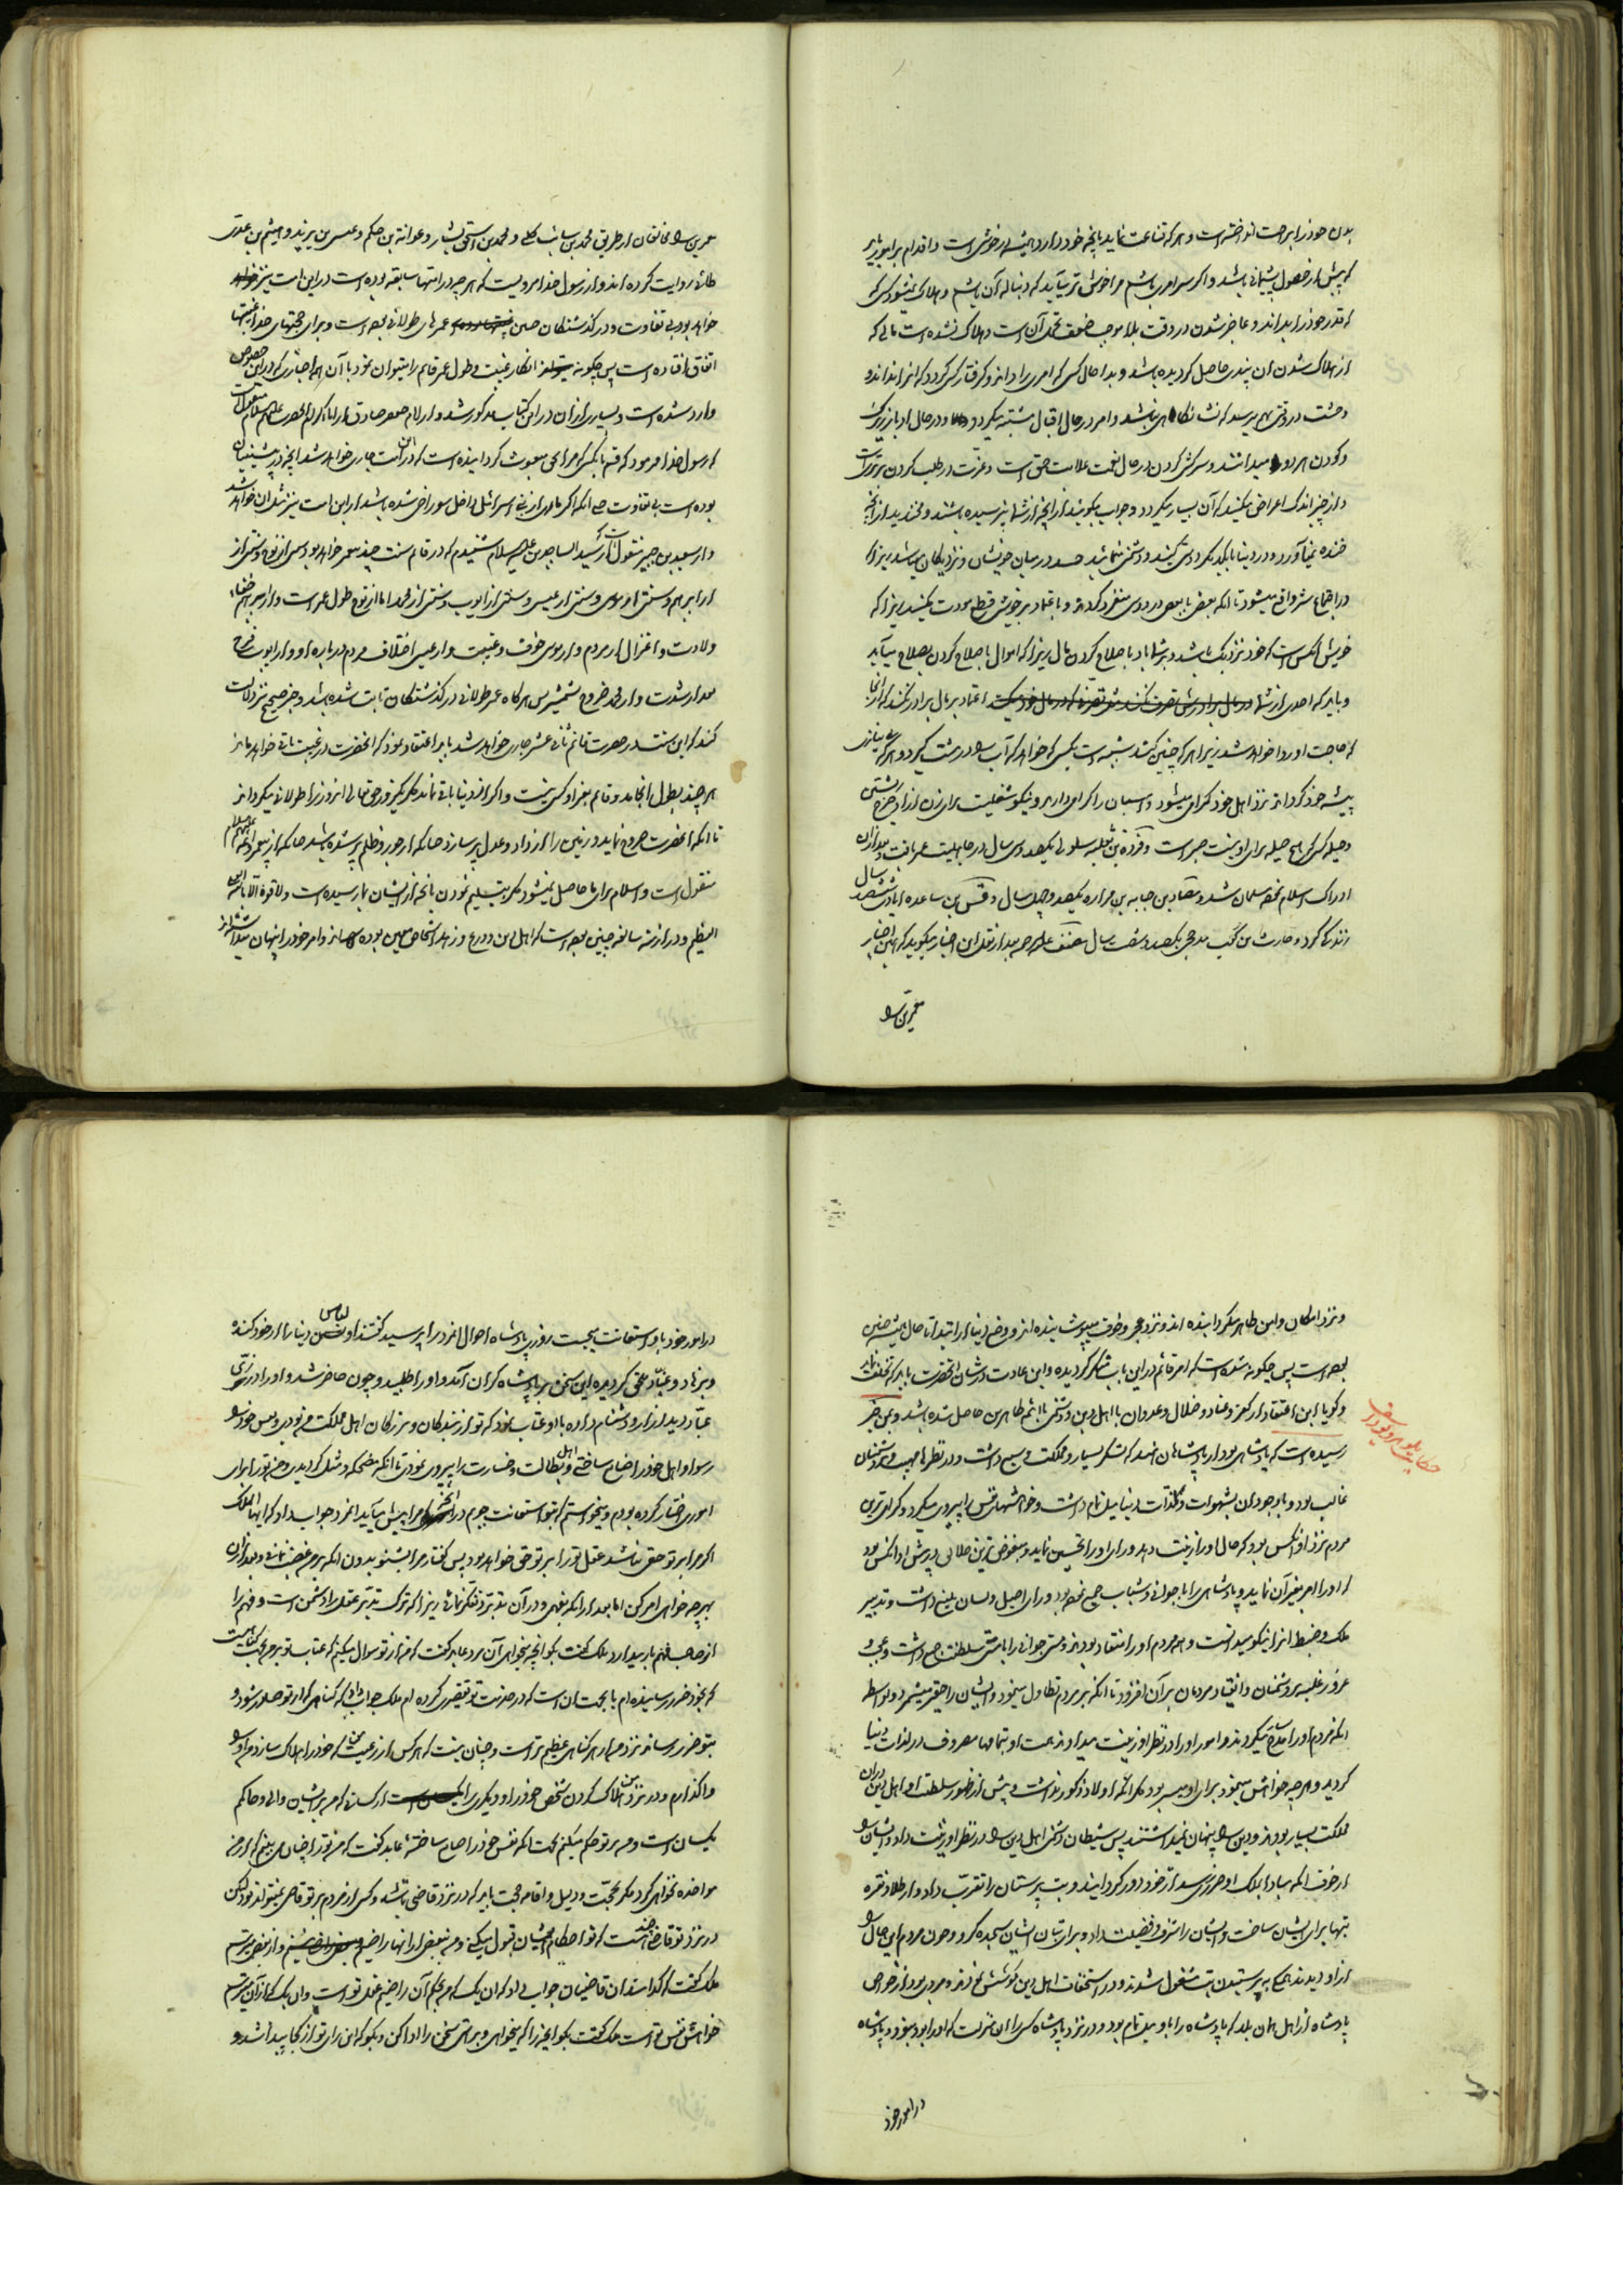 بدن خود را براحت انداخته است و هر که قناعت نماید بآنچه خود دارد همیشه خوش است و اقدام بر امور باید
که پیش از حصول پشیمانی باشد و اگر سر امری باشم مرا خوش تر می‌آید که دنباله آن باشم و هلاک نمیشود کسی که
که قدر خود را بداند و عاجز شدن در وقت بلا موجب ضعف تحمل آن است و هلاک نشده است مالی که
از هلاک شدن آن پندی حاصل گردیده باشد و بد احال کسی که امری را داند و گرفتار کسی گردد که آنرا نداند و
وحشت در وقتی بهم میرسد که نشانگاهی نباشد و امر در حال اقبال مشتبه میگردد و در حال ادبار زیرک
و کودن هر دو میدانند و سرکشی کردن در حال نعمت علامت حمق است و عزت در طلب کردن بزرگیست
و از چیز اندک اعراض مکنید که آن بسیار میگردد و جواب مگوئید از آنچه از شما نپرسیده باشند و مخندید از آنچه
خنده نمیآورد و در دنیا با یکدیگر دوستی کنید و دشمنی منمائید حسد در میان خویشان و نزدیکان میباشد زیرا که
در اجتماع شر واقع میشود تا آنکه بعضی با بعضی در دوستی متفرد گردند و باعتماد بر خویشی قطع مودت مکنید زیرا که
خویش آنکس است که خود نزدیک باشد و بر شما باد باصلاح کردن مال زیرا که اموال باصلاح کردن بصلاح میآید
و باید که احدی از شما اعتماد بر مال برادر نکند که از آنجا
که حاجت او روا خواهد شد زیرا هر که چنین کند شبیه است بکسی که خواهد که آب را در مشت گیرد و هر که بی نیازی
پیشه خود گرداند نزد اهل خود گرامی میشود و اسبان را گرامی دارید و نیکو شغلیست برای زن آزاد چرخ رشتن
و حیله کسی که هیچ حیله برای او نیست صبر است و فروة بن ثعلبه سلولی یکصد و سی سال در جاهلیت عمر یافت و بعد از آن
ادراک اسلام نموده مسلمان شد و مصاد بن جنابه بن مراره یکصد و چهل سال و قس بن ساعده ایادی ششصد سال
زندگانی کرد و حارث بن کعب مدحجی یکصد و شصت سال مصنف علیه الرحمه بعد از نقل این اخبار میگوید که همین اخبار
معمرین را
معمرین را مخالفان از طریق محمد بن سائب کلبی و محمد بن اسحق بشار و عوانة بن حکم و عیسی بن یزید و هیثم بن عدی
طائی روایت کرده اند و از رسول خدا مرویست که هر چه در امتها سابقه بوده است در این امت نیز
خواهد بود بی تفاوت و در گذشتگان چنین عمرهای طولانی بوده است و برای حجتهای خدا غیبتها
اتفاق افتاده است پس چگونه انکار غیبت و طول عمر قائم را میتوان نمود با آن همه اخباری که در این خصوص
وارد شده است و بسیاری از آن در این کتاب مذکور شد و از امام جعفر صادق از اباء کرام آنحضرت علیهم السلام منقول است
که رسول خدا فرمود که قسم بآنکس که مرا بحق مبعوث گردانیده است که در این امت جاری خواهد شد آنچه در پیشینیان
بوده است بی تفاوت حتی آنکه اگر ماری از بنی اسرائیل داخل سوراخی شده باشد از این امت نیز مثل آن خواهد شد
و از سعید بن جبیر منقول است که از سید الساجدین علیه السلام شنیدم که در قائم سنت چند پیغمبر خواهد بود سنتی از نوح و سنتی از
ابراهیم و سنتی از موسی و سنتی از عیسی و سنتی از ایوب و سنتی از محمد اما از نوح طول عمر است و از ابراهیم خفاء
ولادت و اعتزال از مردم و از موسی خوف و غیبت و از عیسی اختلاف مردم درباره او و از ایوب فرج
بعد از شدت و از محمد خروج بشمشیر پس هر گاه عمر طولانی در گذشتگان ثابت شده باشد و خبر صحیح نیز دلالت
کند که این سنت در حضرت قائم ثانی عشر جاری خواهد شد باید اعتقاد نمود که آنحضرت در غیبت باقی خواهد ماند
هر چند بطول انجامد و قائم بغیر او کسی نیست و اگر از دنیا باقی نماند مگر یکروز حق تعالی آنروز را طولانی میگرداند
تا آنکه آنحضرت خروج نماید و زمین را از داد و عدل پر سازد چنانکه از جور و ظلم پر شده باشد چنانکه از پیغمبر و ائمه علیهم السلام
منقول است و اسلام برای ما حاصل نمیشود مگر بتسلیم نمودن بآنچه از ایشان بما رسیده است و لا قوة الا بالله العلی
العظیم و در ازمنه سالفه چنین بوده است که اهل دین و ورع و زهد اشخاص معین بوده اند و امر خود را پنهان میداشته اند
و نزد امکان و امن ظاهر میگردانیده اند و نزد عجز و خوف میپوشانیده اند و وضع دنیا از ابتدا تا حال همیشه چنین
بوده است پس چگونه شده است که امر قائم در این باب منکر گردیده و این عادت در شان آنحضرت باید که تخلف نماید
و گویا این اعتقاد از کفر و عناد و ضلال و عدوان با اهل دین و دشمنی با ائمه طاهرین حاصل شده باشد و بمن خبر
حکایت بلوهر و یوذاسف
رسیده است که پادشاهی بود از پادشاهان هند که لشکر بسیار و مملکت وسیع داشت و در نظرها مهیب و بر دشمنان
غالب بود و باوجود آن بشهوات و لذات دنیا میل تمام داشت و خواهشهای نفس را پیروی میکرد و گرامی ترین
مردم نزد او آنکس بود که حال او را زینت دهد و رای او را تحسین نماید و مبغوض ترین خلائق در پیش او آنکس بود
که او را امر بغیر آن نماید و پادشاهی را با جوانی و شباب جمع نموده بود و رای اصیل و لسان بلیغ داشت و تدبیر
ملک و ضبط آنرا نیکو میدانست و همه مردم او را منقاد بودند و مستی جوانی را با مستی سلطنت جمع داشت و عجب و
غرور غلبه بر دشمنان و انقیاد مردمان بر آن افزود تا آنکه بر مردم تطاول مینمود و ایشان را حقیر میشمرد و بواسطه
آنکه مردم او را مداح میکردند و امور او را در نظر او زینت میدادند همت او بتمامها مصروف در لذات دنیا
گردید و هر چه خواهش مینمود برای او میسر بود مگر آنکه اولاد ذکور نداشت و پیش از ظهور سلطنت او اهل دین در آن
مملکت بسیار بودند و دین را پنهان نمیداشتند پس شیطان دشمنی اهل دین را در نظر او زینت داد و ایشان را
از خوف آنکه مبادا بملک او ضرری رسد از خود دور گردانید و بت پرستان را تقرب داد و از طلا و نقره
بتها برای ایشان ساخت و ایشان را شرف و فضیلت داد و برای بتان ایشان سجده کرد و چون مردم این حال را
از او دیدند همگی به پرستیدن بت مشغول شدند و در استخفاف اهل دین کوشش نمودند و مردی بود از خواص
پادشاه از اهل همان بلد که پادشاه را با او میل تمام بود و در نزد پادشاه کسی را آن منزلت که او را بود نبود و پادشاه
در امور خود
در امور خود باو استعانت میجست روزی پادشاه احوال آنمرد را پرسید گفتند او لباس دنیا را از خود کنده
و بزهاد و عباد ملحق گردیده این سخن بر پادشاه گران آمد و او را طلبید و چون حاضر شد و او را در زی
عباد دید آزار و دشنام داده با او عتاب نمود که تو از بندگان و بزرگان اهل مملکت من بودی و پس خود را
رسوا و اهل خود را ضایع ساختی و اهل بطالت و خسارت را پیروی نمودی تا آنکه مضحکه و مثل گردیدی و من تو را برای
اموری اختیار کرده بودم و میخواستم که بتو استعانت جویم در آنچه مرا پیش میآید آنمرد جواب داد که ایها الملک
اگر مرا بر تو حقی نباشد عقل تو را بر تو حقی خواهد بود پس گفتار مرا بشنو بدون آنکه بر من غضب نمائی و بعد از آن
بهر چه خواهی امر کن اما بعد از آنکه بفهمی و در آن تدبر و تفکر نمائی زیرا که ترک تدبر عقل را دشمن است و فهم را
از صاحب فهم باز میدارد ملک گفت بگو آنچه میخواهی آن مرد عابد گفت که من از تو سوال میکنم که عتاب تو بر من بجهت گناهیست
که بخود ضرر رسانیده ام یا بجهت آن است که در خدمت تو تقصیری کرده ام ملک جواب داد که گناهی که از تو صادر شود و
بتو ضرر رساند نزد من از هر گناهی عظیم تر است و چنان نیست که هر کس از رعیت من که خود را هلاک سازد من او را
واگذارم و در نزد من هلاک کردن شخص خود را و دیگری را از کسانی که من بر ایشان والی و حاکم
یکسان است و من بر تو حکم میکنم بجهت آنکه نفس خود را ضایع ساخته عابد گفت که من تو را چنان می بینم که از من
مواخذه نخواهی کرد مگر بحجت و دلیل و اقامه حجت باید که در نزد قاضی باشد و کسی از مردم بر تو قاضی نمیتواند بود لکن
در نزد تو قاضی چند هست که تو احکام ایشان قبول میکنی و من ببعضی از آنها راضیم و از بعضی میترسم
ملک گفت که کدامند آن قاضیان جواب داد که آن یک که من بحکم آن راضیم عقل تو است و آن یک که از آن میترسم
خواهش نفس تو است ملک گفت بگو آنچه را که میخواهی و براستی سخن را ادا کن و بگو که این رای تو از کجا پیدا شد و